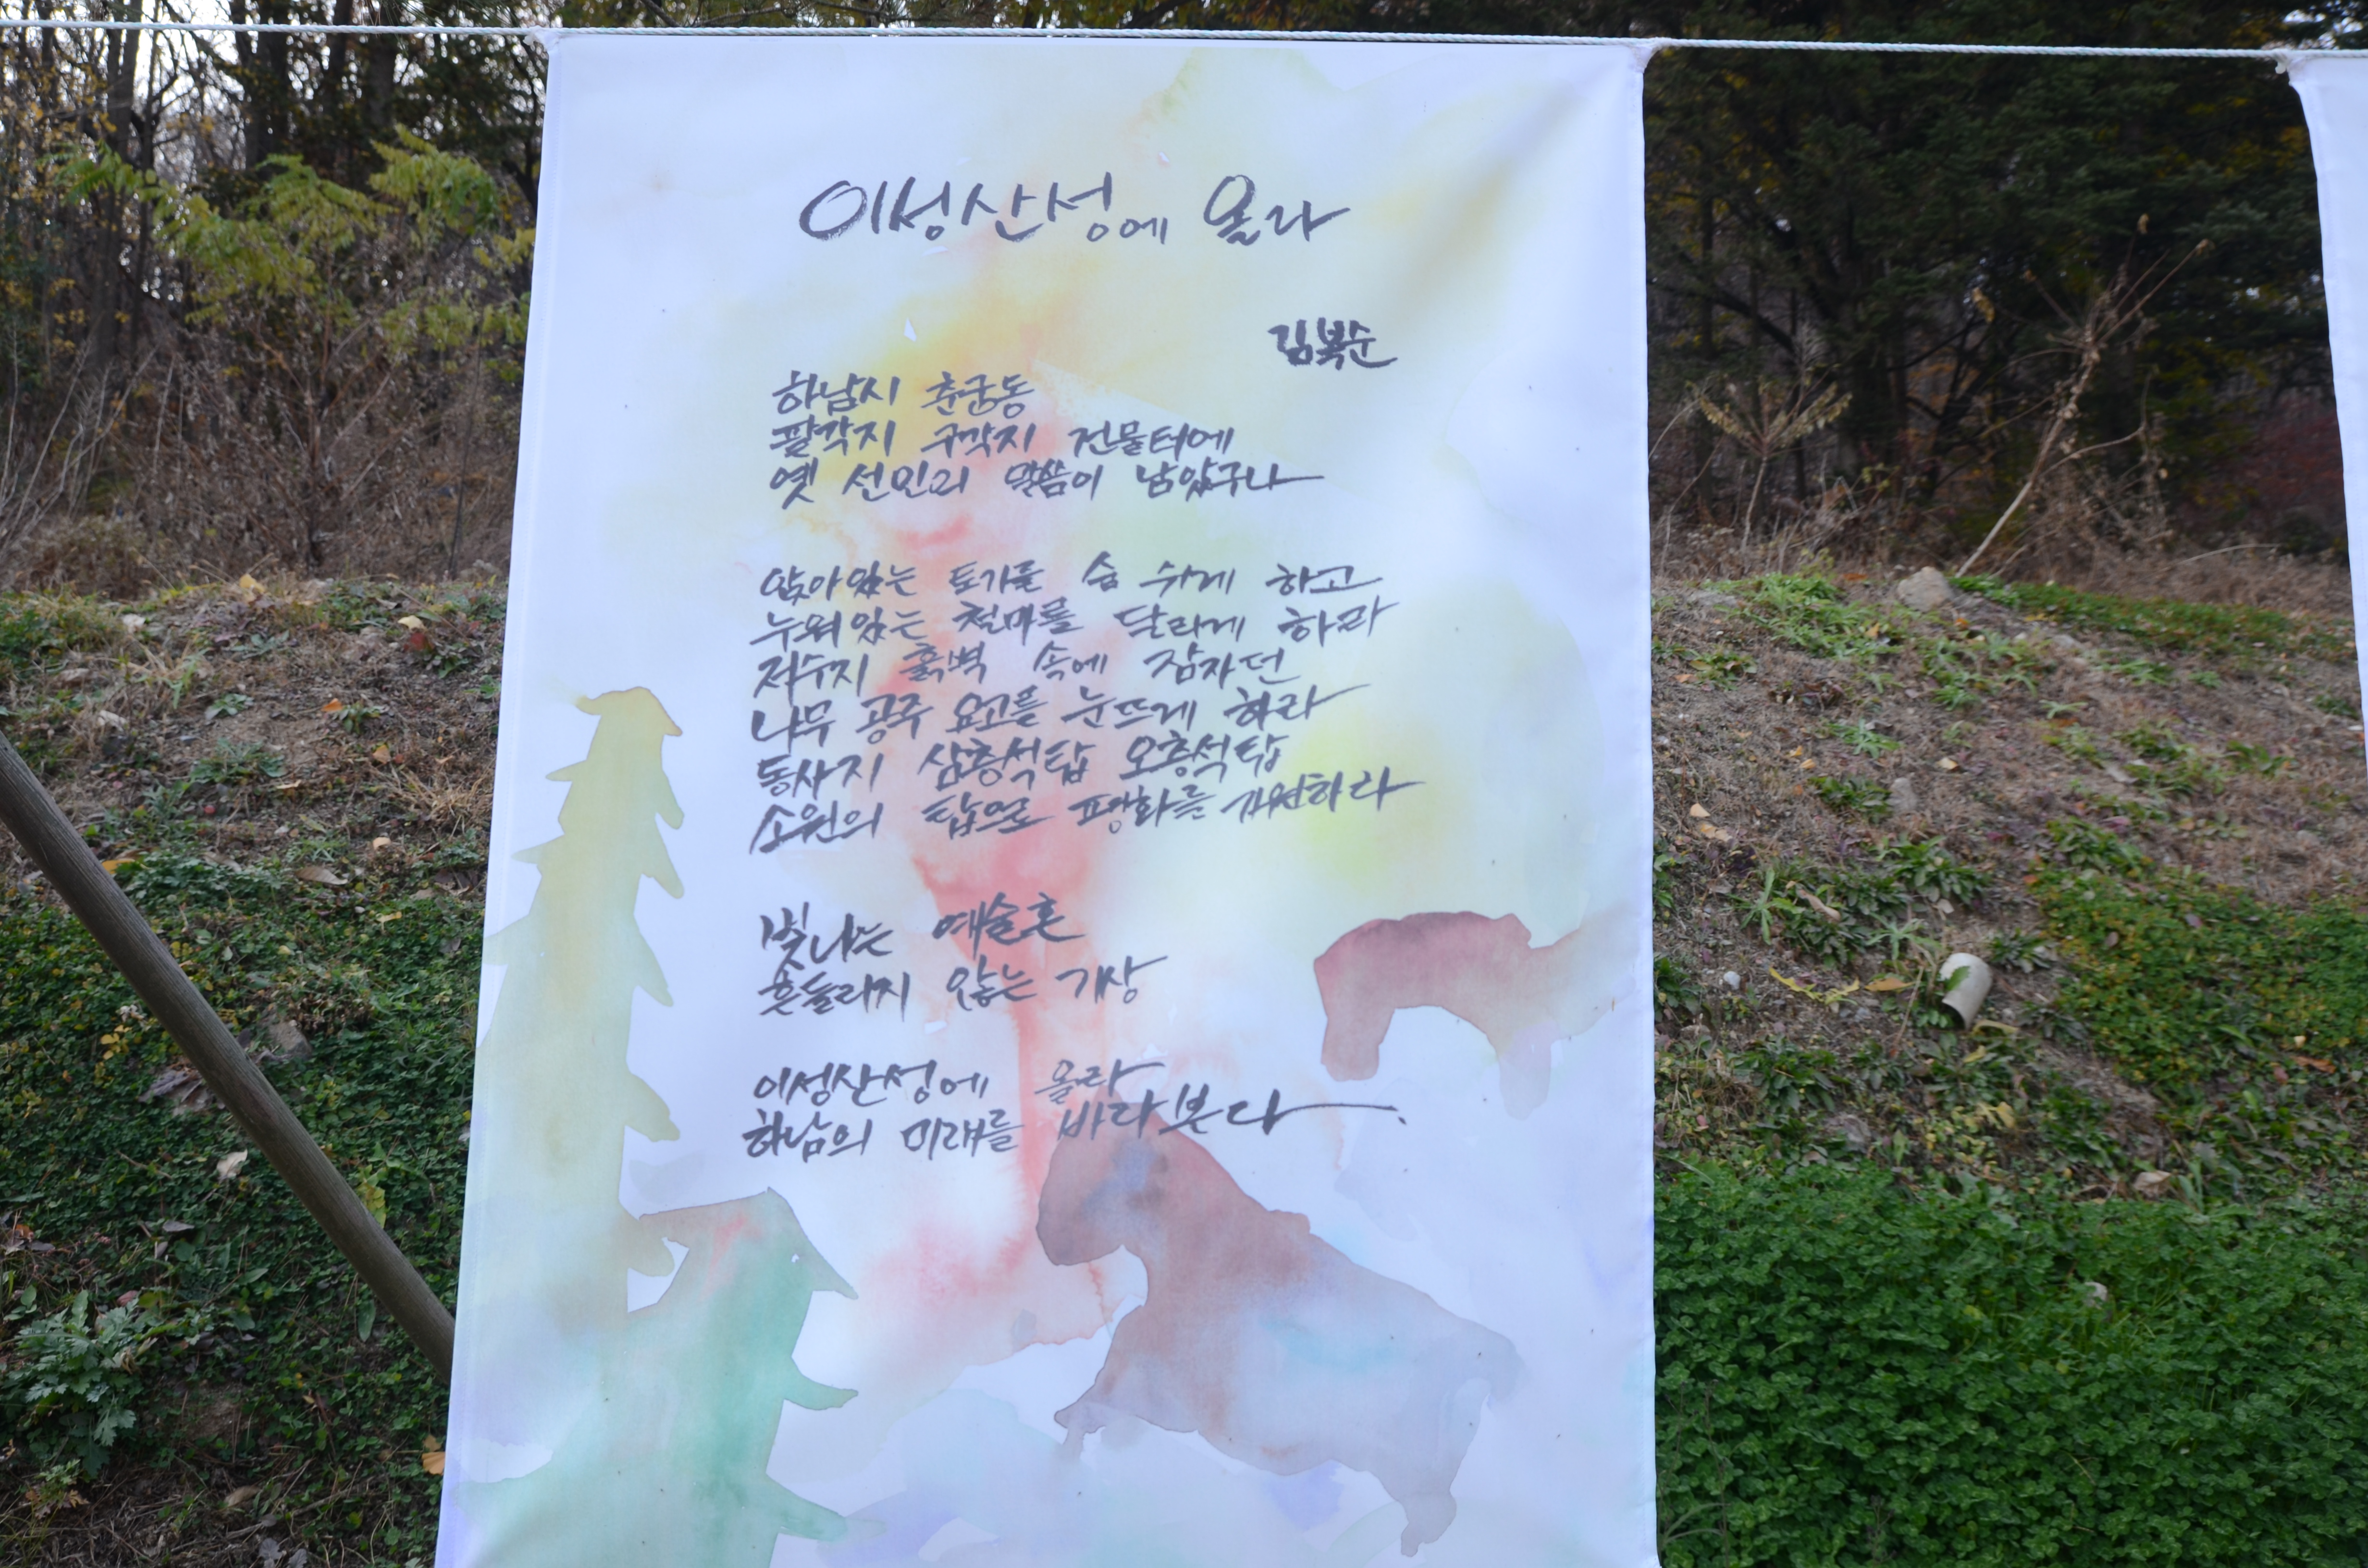 이성산성에 올라
김복순
하남시 춘궁동
팔각지 구각지 건물터에
옛 선인의 말씀이 남았구나
앉아있는 토기를 숨 쉬게 하고
누워있는 철마를 달리게 하라
저수지 흙벽 속에 잠자던
나무 공주 요고를 눈뜨게 하라
동사지 삼층석탑 오층석탑
소원의 탑으로 평화를 기원하라
빛나는 예술혼
흔들리지 않는 기상
이성산성에 올라
하남의 미래를 바라본다.